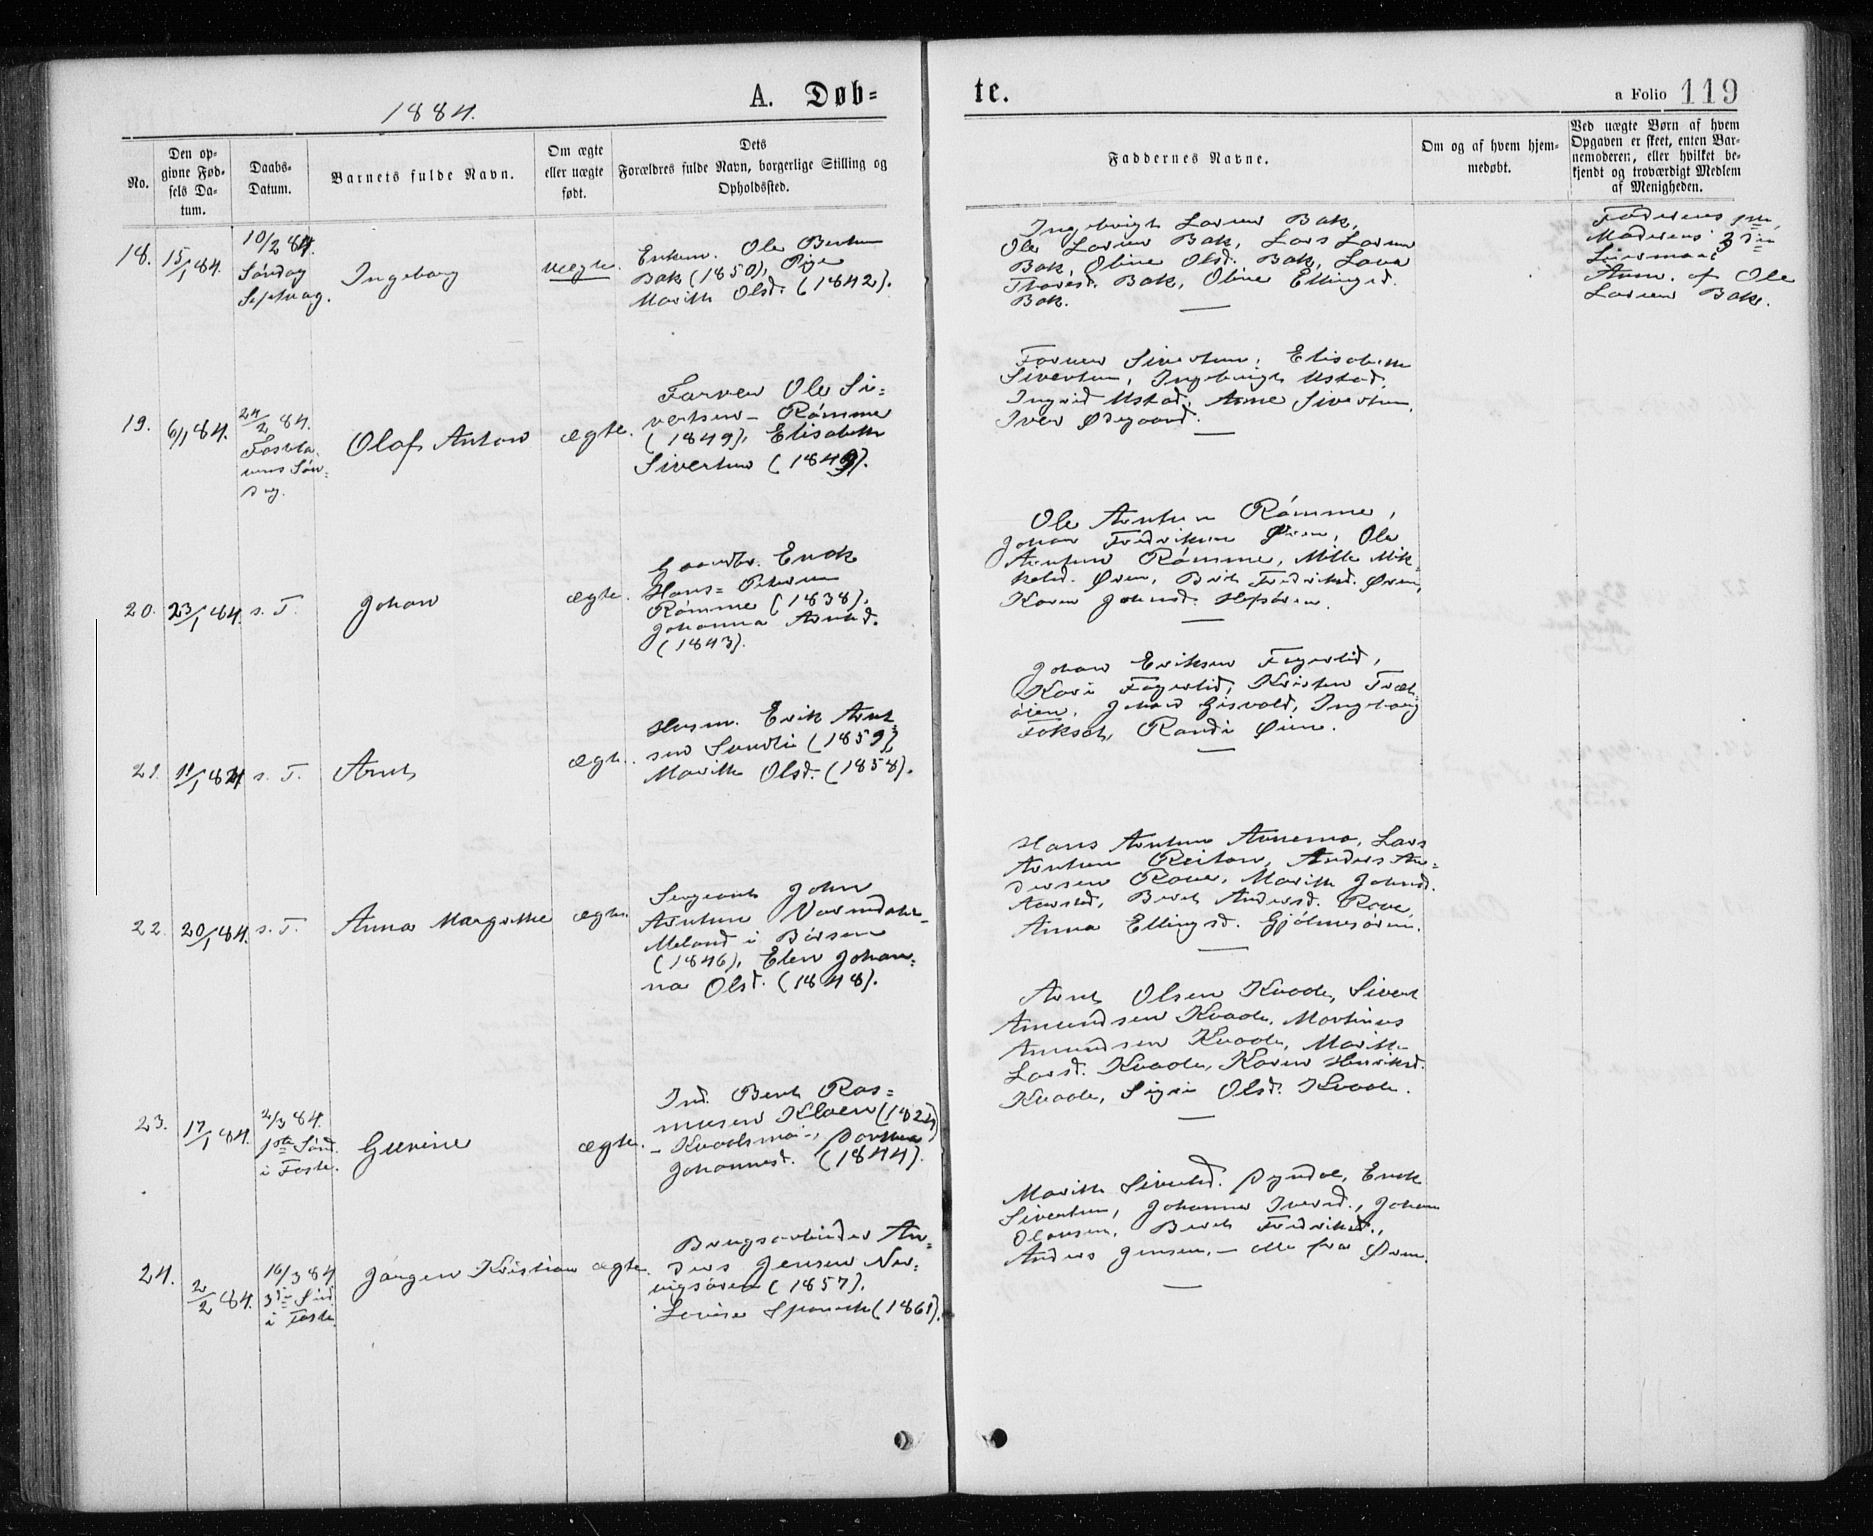 1884.
A. Døb=
te.
a Folio 119
No.
Den op=
givne Fød=
sels Da=
tum.
Daabs=
Datum.
Barnets fulde Navn.
Om ægte
eller uægte
født.
Dets
Forældres fulde Navn, borgerlige Stilling og
Opholdssted.
Faddernes Navne.
Om og af hvem hjem=
medøbt.
Ved uægte Børn af hvem
Opgaven er skeet, enten Bar=
nemoderen, eller hvilket be=
kjendt og troværdigt Medlem
af Menigheden.
18.
15/1 84.
10/2 84.
Søndag
Septuag.
Ingeborg
uægte.
Enkem. Ole Bertsen
Bak (1850), Pige
Marith Olsd. (1842).
Ingebrigt Larsen Bak,
Ole Larsen Bak, Lars Larsen
Bak, Oline Olsd. Bak, Lava
Thoresd. Bak, Oline Ellingsd.
Bak.
Faderens 1ste,
Moderens 3die
Leiermaal
Anm. af Ole
Larsen Bak.
19.
6/1 84.
24/2 84.
Fastela=
vens Søn=
dag.
Olaf Anton
ægte.
Farver Ole Si=
vertsen - Rømme
(1849), Elisabeth
Sivertsen (1849).
Farver Sivertsen, Elisabeth
Sivertsen, Ingebrigt Ustad,
Ingrid Ustad, Arne Sivertsen,
Iver Ødegaard.
20.
23/1 84.
s. D.
Johan
ægte.
Gaardbr. Erik
Hans=Petersen
Rømme (1838),
Johanna Arntsd.
(1843).
Ole Arntsen Rømme,
Johan Fredriksen Øien, Ole
Arntsen Rømme, Mille Mik=
kelsd. Øren, Berit Fredriksd. Øren,
Karen Johnsd.
21.
11/1 84
s. D.
Arnt
ægte.
Husm. Erik Arnt=
sen Sundli (1859)
Marith Olsd. (1858).
Johan Eriksen Fagerlid,
Kari Fagerlid, Kristen Træt=
øien, Johan Gisvold, Ingeborg
Fokset, Randi Øien.
22.
20/1 84.
s. D.
Anna Margrethe
ægte.
Sergeant John
Arntsen Vormdahl
Meland i Børsen
(1846), Elen Johan=
na Olsd. (1848).
Hans Arntsen Aunemo, Lars
Arntsen Reitan, Anders An=
dersen Rove, Marith Johnsd.
Aarstad, Berit Andersd. Rove,
Anna Ellingsd. Gjølmesøren.
23.
17/1 84.
2/3 84.
1ste Sønd.
i Faste.
Gurine
ægte.
Ind. Berit Ras=
musen Kløen (1824)
- Kvaalsmo -, Dorthea
Johannesd. (1844).
Arnt Olsen Kvaale, Sivert
Amundsen Kvaale, Martinus
Amundsen Kvaale, Marith
Larsd. Kvaale, Karen Henriksd.
Kvaale, Sigri Olsd. Kvaale.
24.
2/2 84.
16/3 84.
3die Sønd.
i Faste.
Jørgen Kristian
ægte.
Brugsarbeider An=
ders Jensen Ner=
vigsøren (1857),
Lovise (1861).
Marith Sivertsd. Dyrdal, Erik
Sivertsen, Johanna Iversd., Johan
Olausen, Berit Fredriksd.,
Anders Jensen, - alle fra Øren.